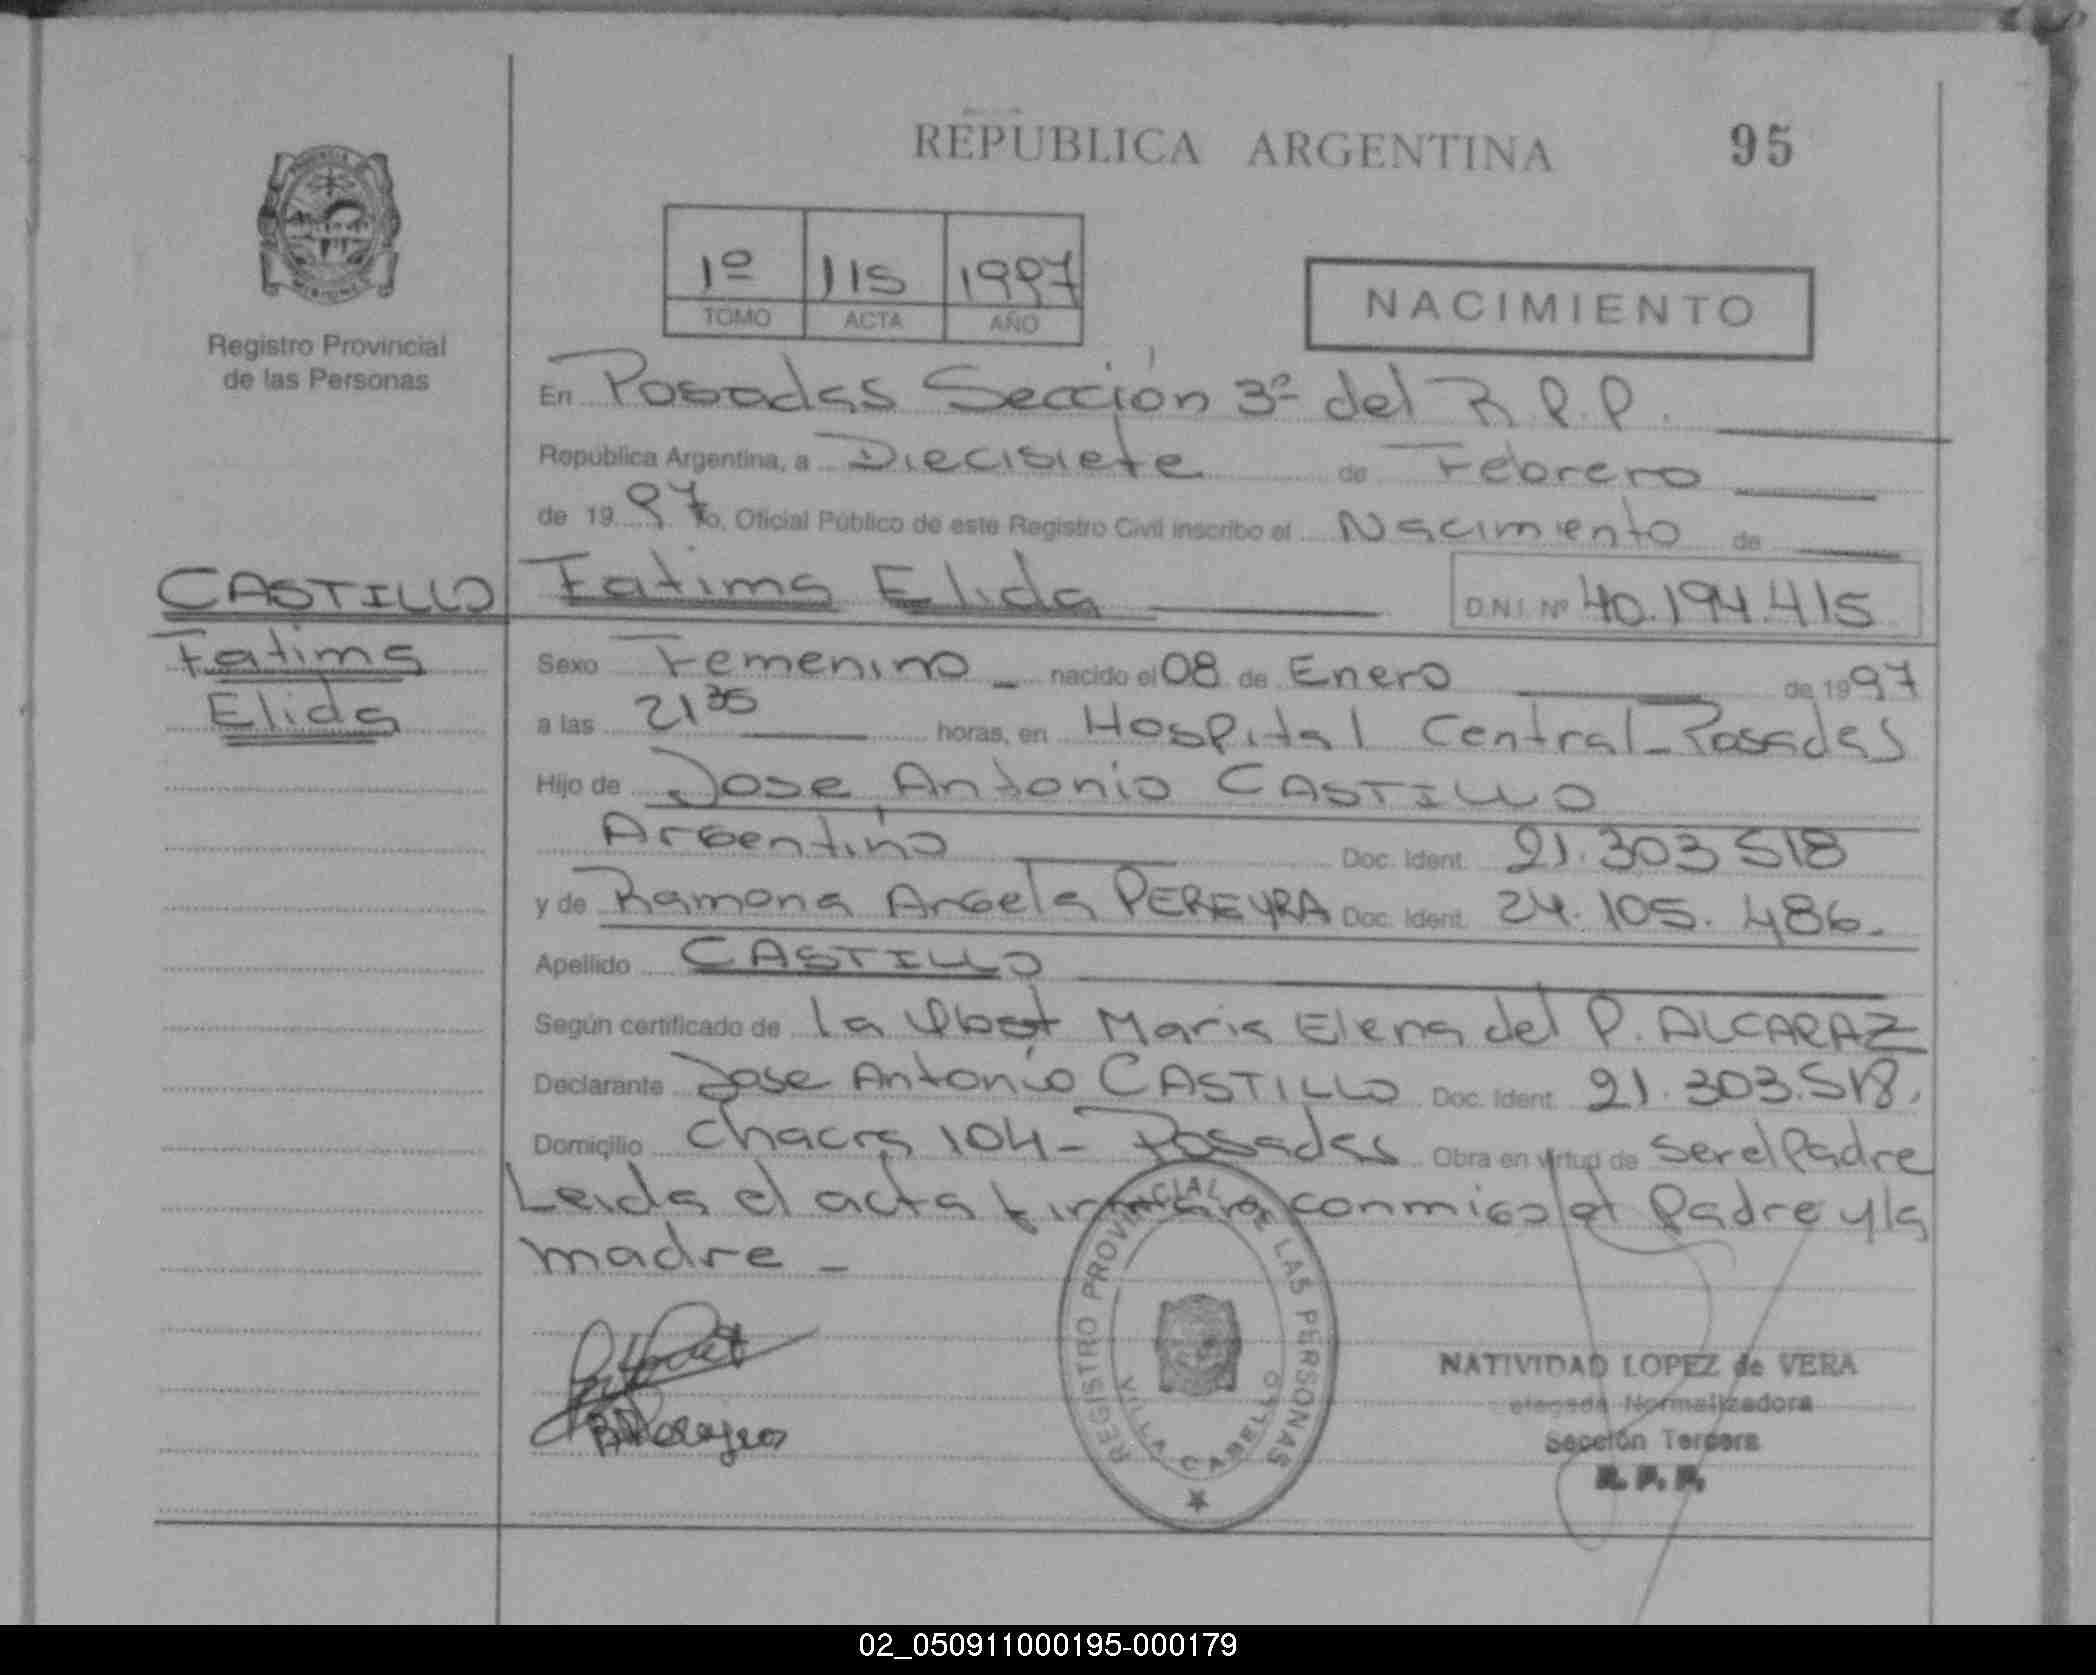 REPUBLICA ARGENTINA
95
1º 115 1997
TOMO ACTA AÑO
NACIMIENTO
Registro Provincial
de las Personas
En Posadas Sección 3ª del R.P.P.
República Argentina, a Diecisiete de Febrero
de 1997 Yo, Oficial Público de este Registro Civil inscribo el Nacimiento de
CASTILLO Fatima Elida D.N.I. Nº 40.194.415
Fatima
Elida
Sexo Femenino nacido el 08 de Enero de 1997
a las 21 35 horas, en Hospital Central - Posadas
Hijo de Jose Antonio CASTILLO
Argentino Doc. Ident. 21.303 518
y de Ramona Angela PEREYRA Doc. Ident. 24.105.486.
Apellido CASTILLO
Según certificado de la Obst Maria Elena del P. ALCARAZ
Declarante Jose Antonio CASTILLO Doc. Ident. 21.303.518.
Domicilio chacra 104 - Posadas Obra en virtud de ser el Padre
Leida el acta firman conmigo el Padre y la
madre -
REGISTRO PROVINCIAL DE LAS PERSONAS
VILLA CABELLO
NATIVIDAD LOPEZ de VERA
Delegada Normalizadora
Sección Tercera
R. P. P.
02_050911000195-000179